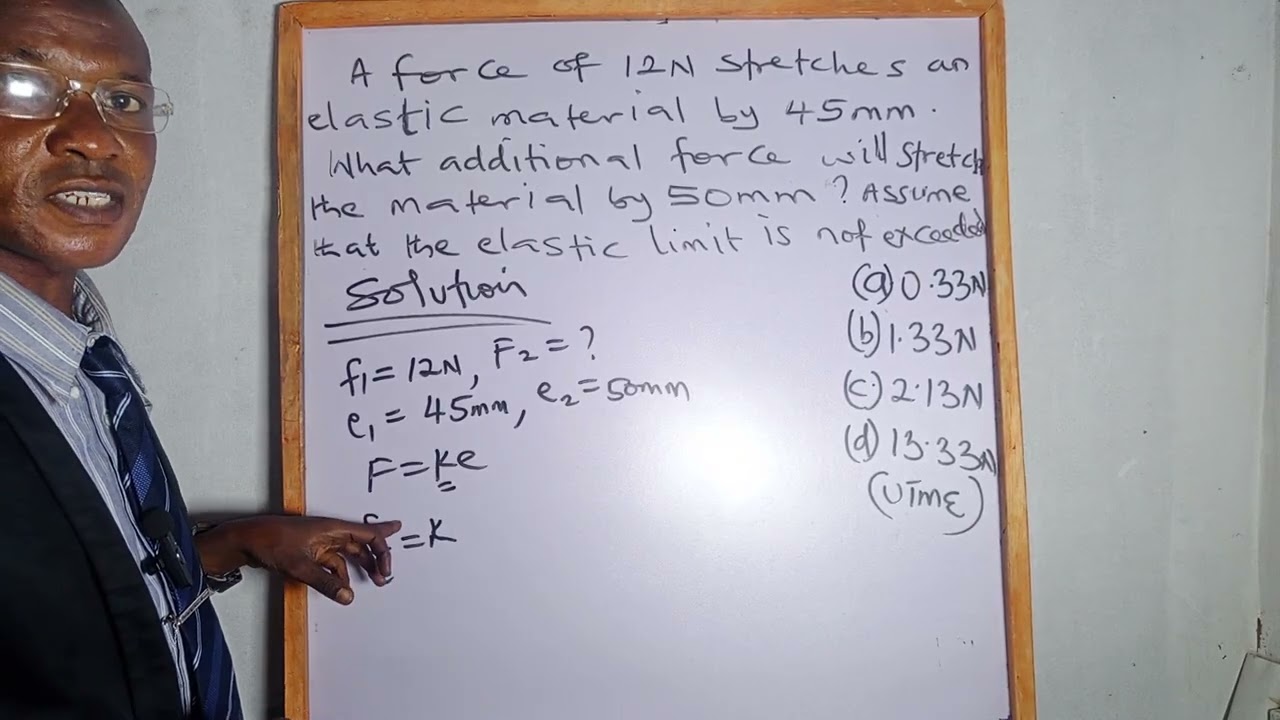 A force of 12N stretches an
elastic material by 45mm.
What additional force will stretch
the material by 50mm? Assume
that the elastic limit is not exceeded
Solution
(a) 0.33N
(b) 1.33N
(c) 2.13N
(d) 13.33N
(UTME)
f₁ = 12N, F₂ = ?
e₁ = 45mm, e₂ = 50mm
F = ke
= k